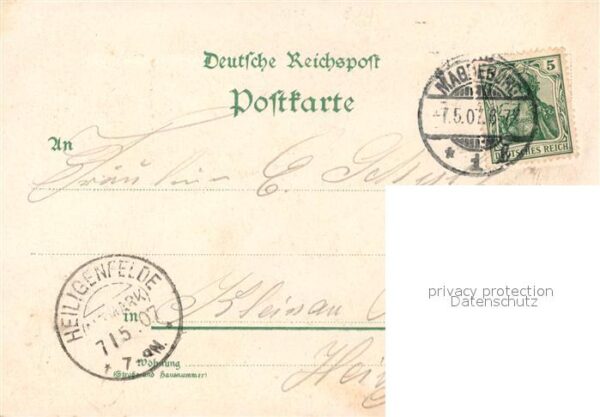 Deutsche Reichspost
Postkarte
MAGDEBURG
-7.5.07. 6-7
* 1
5
DEUTSCHES REICH
An
Fräulein E.
privacy protection
Datenschutz
HEILIGENFELDE
(ALTMARK)
7/5 07
* 7- N.
in Kleinau
Wohnung
(Straße und Hausnummer)